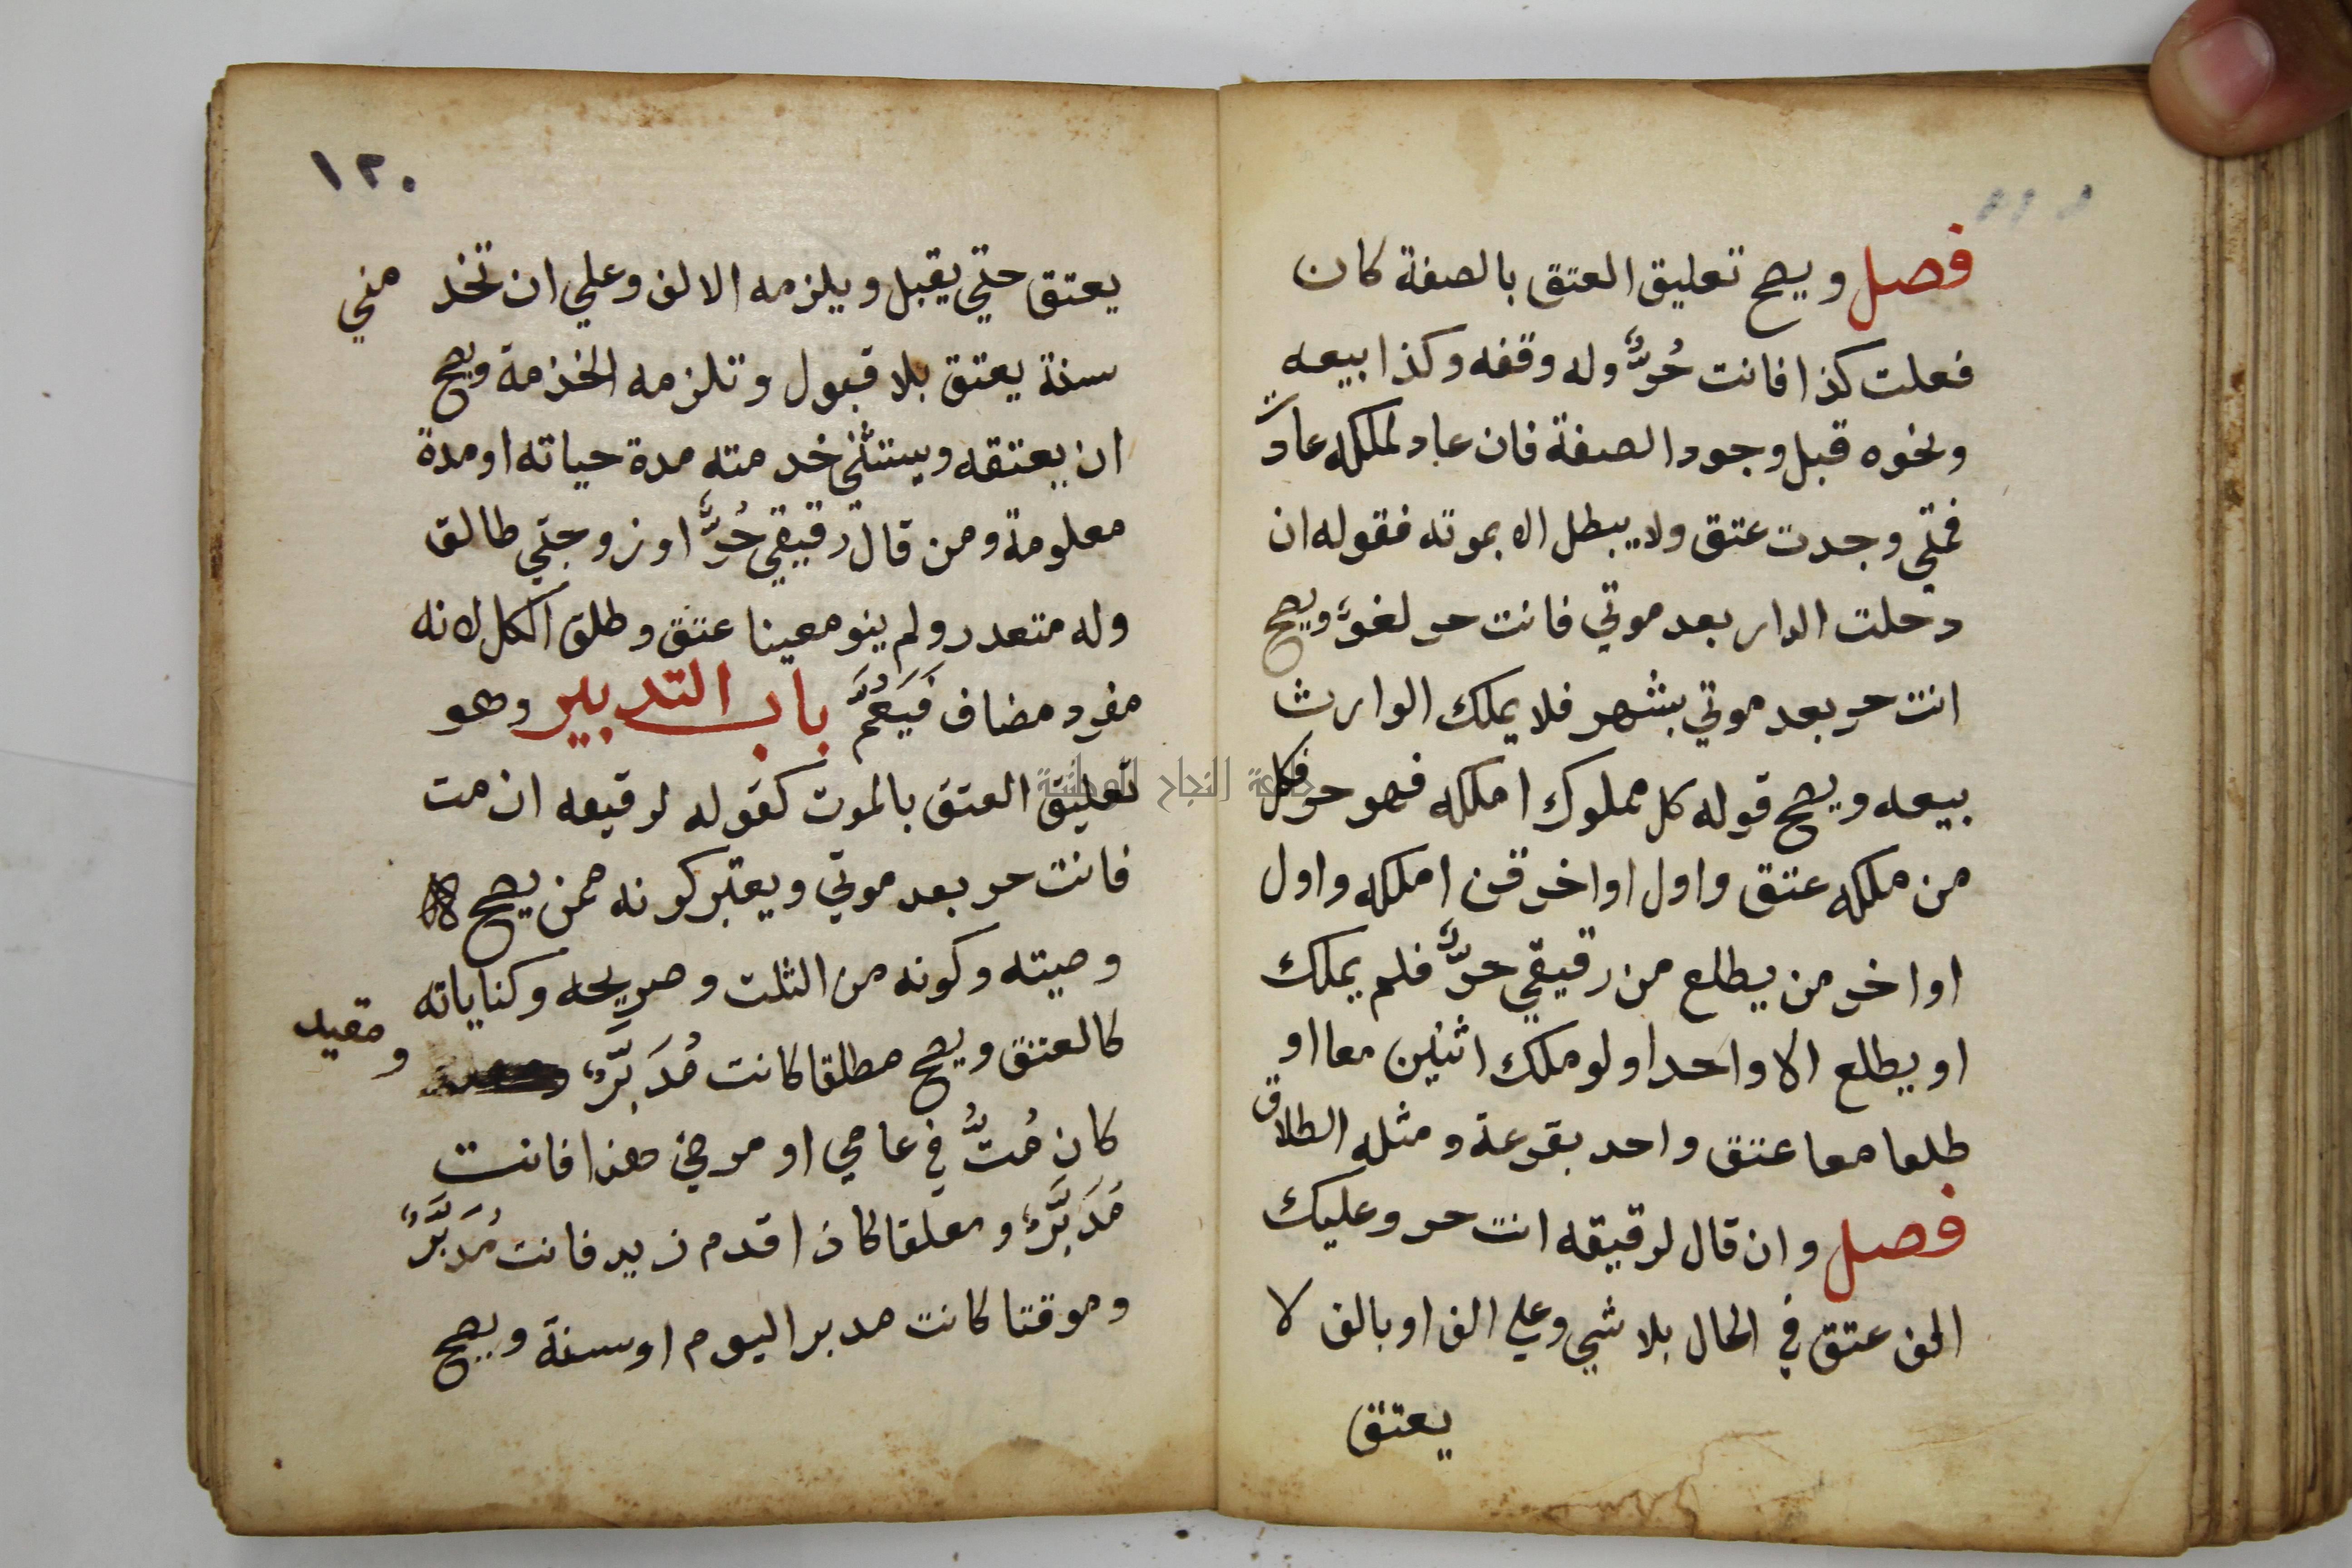 فصل ويصح تعليق العتق بالصفة كان
فعلت كذا فانت حُرٌّ وله وقفه وكذا بيعه
ونحوه قبل وجود الصفة فان عاد لملكه عادت
فمتي وجدت عتق ولا يبطل الا بموته فقوله ان
دخلت الدار بعد موتي فانت حر لغوٌ ويصح
انت حر بعد موتي بشهر فلا يملك الوارث
بيعه ويصح قوله كل مملوك املكه فهو حر فكل
من ملكه عتق واول او اخر قن املكه واول
او اخر من يطلع من رقيقي حرٌّ فلم يملك
او يطلع الا واحدا ولو ملك اثنين معا او
طلعا معا عتق واحد بقرعة ومثله الطلاق
فصل وان قال لرقيقه انت حر وعليك
الف عتق في الحال بلا شي وعلي الف او بالف لا
يعتق
١٢٠
يعتق حتي يقبل ويلزمه الالف وعلي ان تخد مني
سنة يعتق بلا قبول وتلزمه الخدمة ويصح
ان يعتقه ويستثني خدمته مدة حياته او مدة
معلومة ومن قال رقيقي حُرٌّ او زوجتي طالق
وله متعدد ولم ينو معينا عتق وطلق الكل لانه
مفرد مضاف فَيَعُمُّ باب التدبير وهو
تعليق العتق بالموت كقوله لرقيقه ان مت
فانت حر بعد موتي ويعتبر كونه ممن يصح
وصيته وكونه من الثلت وصريحه وكناياته
كالعتق ويصح مطلقا كانت مُدَبَّرٌ ومقيد
كان مُتُّ في عامي او مرضي هذا فانت
مُدَبَّرٌ ومعلقا كاذا قدم زيد فانت مُدَبَّرٌ
وموقتا كانت مدبر اليوم او سنة ويصح
جامعة النجاح الوطنية